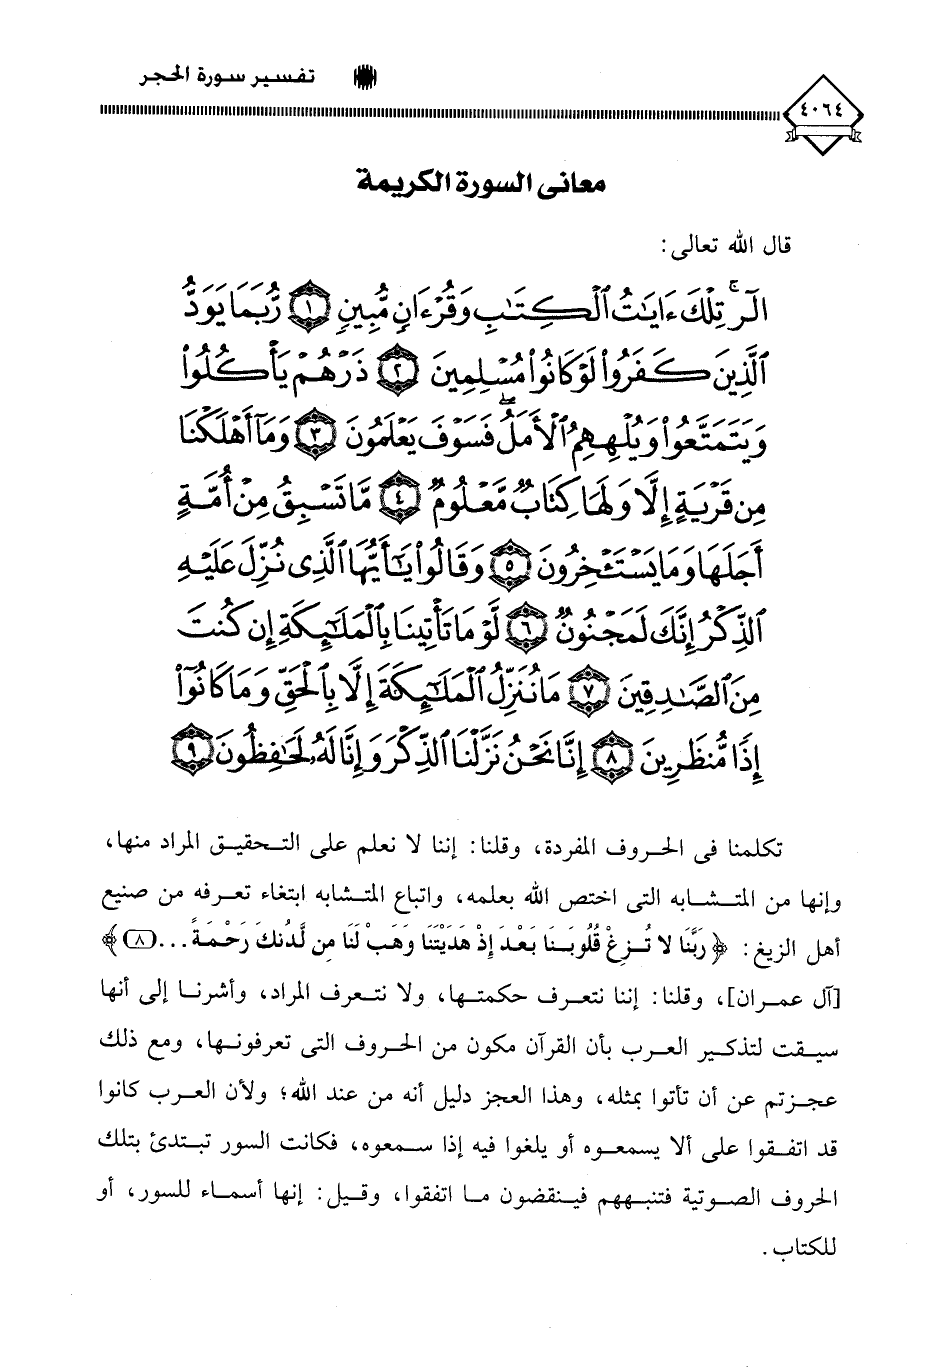 تفسير سورة الحجر
٤٠٦٤
معانى السورة الكريمة
قال الله تعالى:
الٓر ۚ تِلْكَ ءَايَٰتُ ٱلْكِتَٰبِ وَقُرْءَانٍ مُّبِينٍ ١ رُّبَمَا يَوَدُّ
ٱلَّذِينَ كَفَرُوا۟ لَوْ كَانُوا۟ مُسْلِمِينَ ٢ ذَرْهُمْ يَأْكُلُوا۟
وَيَتَمَتَّعُوا۟ وَيُلْهِهِمُ ٱلْأَمَلُ ۖ فَسَوْفَ يَعْلَمُونَ ٣ وَمَآ أَهْلَكْنَا
مِن قَرْيَةٍ إِلَّا وَلَهَا كِتَابٌ مَّعْلُومٌ ٤ مَّا تَسْبِقُ مِنْ أُمَّةٍ
أَجَلَهَا وَمَا يَسْتَـْٔخِرُونَ ٥ وَقَالُوا۟ يَٰٓأَيُّهَا ٱلَّذِى نُزِّلَ عَلَيْهِ
ٱلذِّكْرُ إِنَّكَ لَمَجْنُونٌ ٦ لَّوْ مَا تَأْتِينَا بِٱلْمَلَٰٓئِكَةِ إِن كُنتَ
مِنَ ٱلصَّٰدِقِينَ ٧ مَا نُنَزِّلُ ٱلْمَلَٰٓئِكَةَ إِلَّا بِٱلْحَقِّ وَمَا كَانُوٓا۟
إِذًا مُّنظَرِينَ ٨ إِنَّا نَحْنُ نَزَّلْنَا ٱلذِّكْرَ وَإِنَّا لَهُۥ لَحَٰفِظُونَ ٩
تكلمنا فى الحروف المفردة، وقلنا: إننا لا نعلم على التحقيق المراد منها،
وإنها من المتشابه التى اختص الله بعلمه، واتباع المتشابه ابتغاء تعرفه من صنيع
أهل الزيغ: ﴿رَبَّنَا لا تُزِغْ قُلُوبَنَا بَعْدَ إِذْ هَدَيْتَنَا وَهَبْ لَنَا مِن لَّدُنكَ رَحْمَةً...(٨)﴾
[آل عمران]، وقلنا: إننا نتعرف حكمتها، ولا نتعرف المراد، وأشرنا إلى أنها
سيقت لتذكير العرب بأن القرآن مكون من الحروف التى تعرفونها، ومع ذلك
عجزتم عن أن تأتوا بمثله، وهذا العجز دليل أنه من عند الله؛ ولأن العرب كانوا
قد اتفقوا على ألا يسمعوه أو يلغوا فيه إذا سمعوه، فكانت السور تبتدئ بتلك
الحروف الصوتية فتنبههم فينقضون ما اتفقوا، وقيل: إنها أسماء للسور، أو
للكتاب.